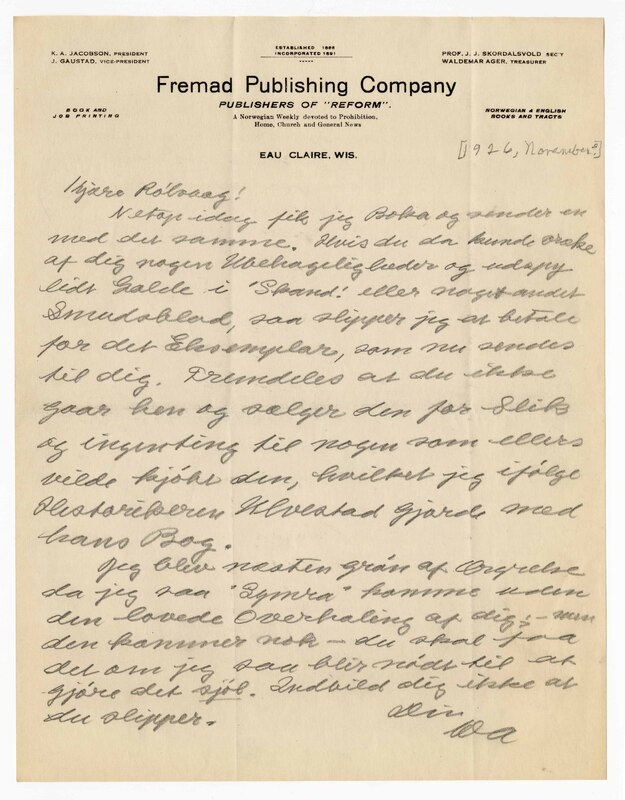 K. A. JACOBSON, PRESIDENT
J. GAUSTAD, VICE-PRESIDENT
ESTABLISHED 1886
INCORPORATED 1891
PROF. J. J. SKORDALSVOLD SEC'Y
WALDEMAR AGER, TREASURER
Fremad Publishing Company
PUBLISHERS OF "REFORM".
A Norwegian Weekly devoted to Prohibition,
Home, Church and General News
BOOK AND
JOB PRINTING
NORWEGIAN & ENGLISH
BOOKS AND TRACTS
EAU CLAIRE, WIS.
[1926, November?]
Kjære Rölvaag!
Netop idag fik jeg Boka og sender en
med det samme. Hvis du da kunde vræke
af dig nogen Ubehageligheder og udspy
lidt Galde i "Skand." eller noget andet
Smudsblad, saa slipper jeg at betale
for det Eksemplar, som nu sendes
til dig. Fremdeles at du ikke
gaar hen og sælger den for Slik
og ingenting til nogen som ellers
vilde kjöbt den, hvilket jeg ifölge
Historikeren Ulvestad gjorde med
hans Bog.
Jeg blev næsten grön af Ærgrelse
da jeg saa "Symra" komme uden
den lovede Overhaling af dig; – men
den kommer nok – du skal faa
det om jeg saa blir nödt til at
gjöre det sjöl. Indbild dig ikke at
du slipper.
Din
WA